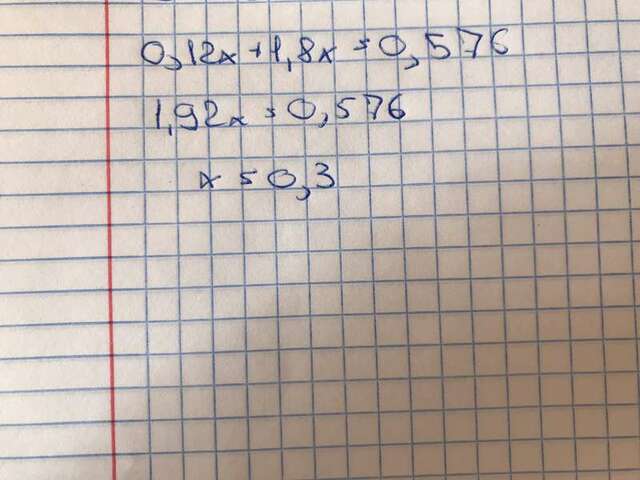 0,12x+1,8x=0,576
1,92x=0,576
x=0,3